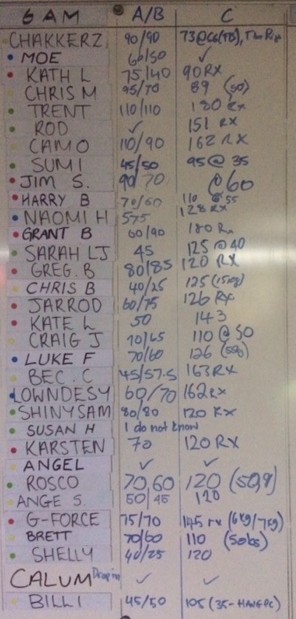 6 AM A/B C
CHAKKERZ 90/90
MOE 60/50 ✓
KATH L 75/40 90 RX
CHRIS M 95/70 89 (50)
TRENT 110/110 180 RX
ROD ✓ 151 RX
CAMO 110/90 162 RX
SUMI 45/50 95 @ 35
JIM S. 90/70 @60
HARRY B 70/60 110 @ 55
NAOMI H 575 128 RX
GRANT B 60/90 180 RX
SARAH LJ 45 125 @ 40
GREG. B 80/85 120 RX
CHRIS B 40/25 125 (15kg)
JARROD 60/75 126 RX
KATE L 50 143
CRAIG J 70/65 110 @ 50
LUKE F 70/60 126
BEC. C 45/57.5 163 RX
LOWNDESY 60/70 162 RX
SHINYSAM 80/80 120 RX
SUSAN H I do not know
KARSTEN 70 120 RX
ANGEL ✓ ✓
ROSCO 70,60 120
ANGE S. 50/45 120
G-FORCE 75/70 145 rx (6kg/7kg)
BRETT 70/60 110
SHELLY 40/25 120
CALUM Drop in ✓ ✓
BILLI 45/50 105